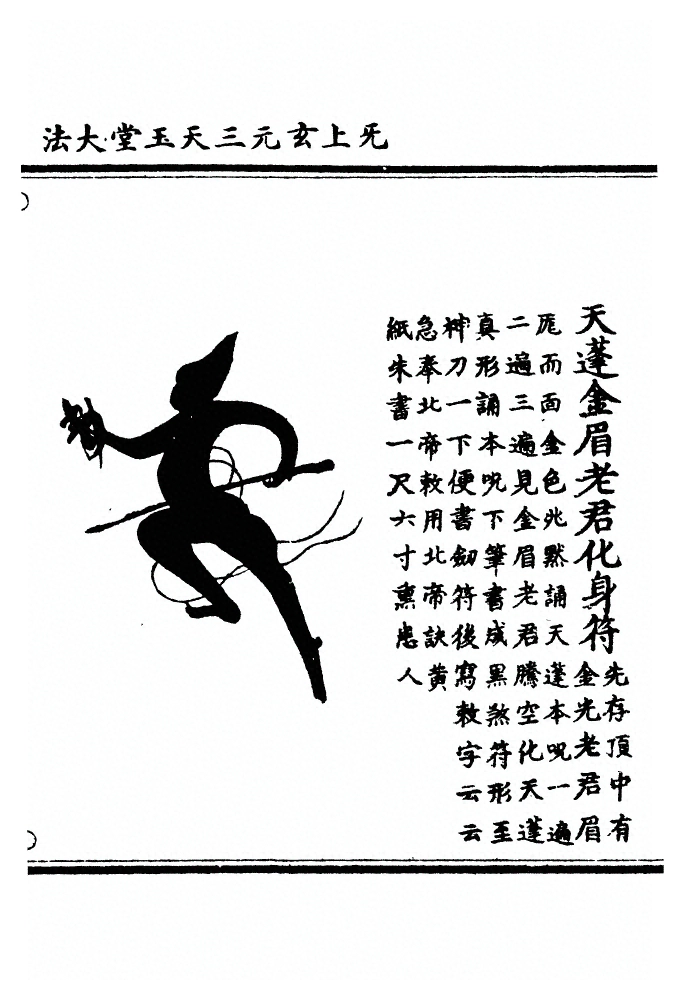 旡上玄元三天玉堂大法
天蓬金眉老君化身符
先存頂中有
金光老君眉
厖而面金色兆默誦天蓬本呪一遍
二遍三遍見金眉老君騰空化天蓬
真形誦本呪下筆書成黑煞符形至
神刀一下便書劒符後寫敕字云云
急奉北帝敕用北帝訣黃
紙朱書一尺六寸熏患人